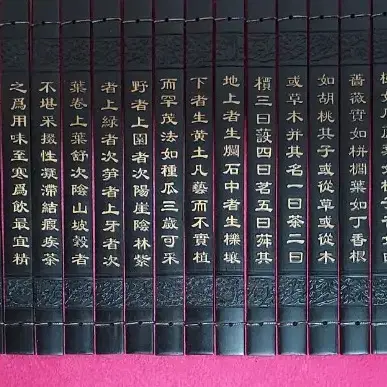 薔薇實如栟櫚葉如丁香根
如胡桃其子或從草或從木
或草木并其名一曰茶二曰
檟三曰蔎四曰茗五曰荈其
地上者生爛石中者生櫟壤
下者生黃土凡藝而不實植
而罕茂法如種瓜三歲可采
野者上園者次陽崖陰林紫
者上綠者次笋者上牙者次
葉卷上葉舒次陰山坡穀者
不堪采掇性凝滯結瘕疾茶
之爲用味至寒爲飲最宜精